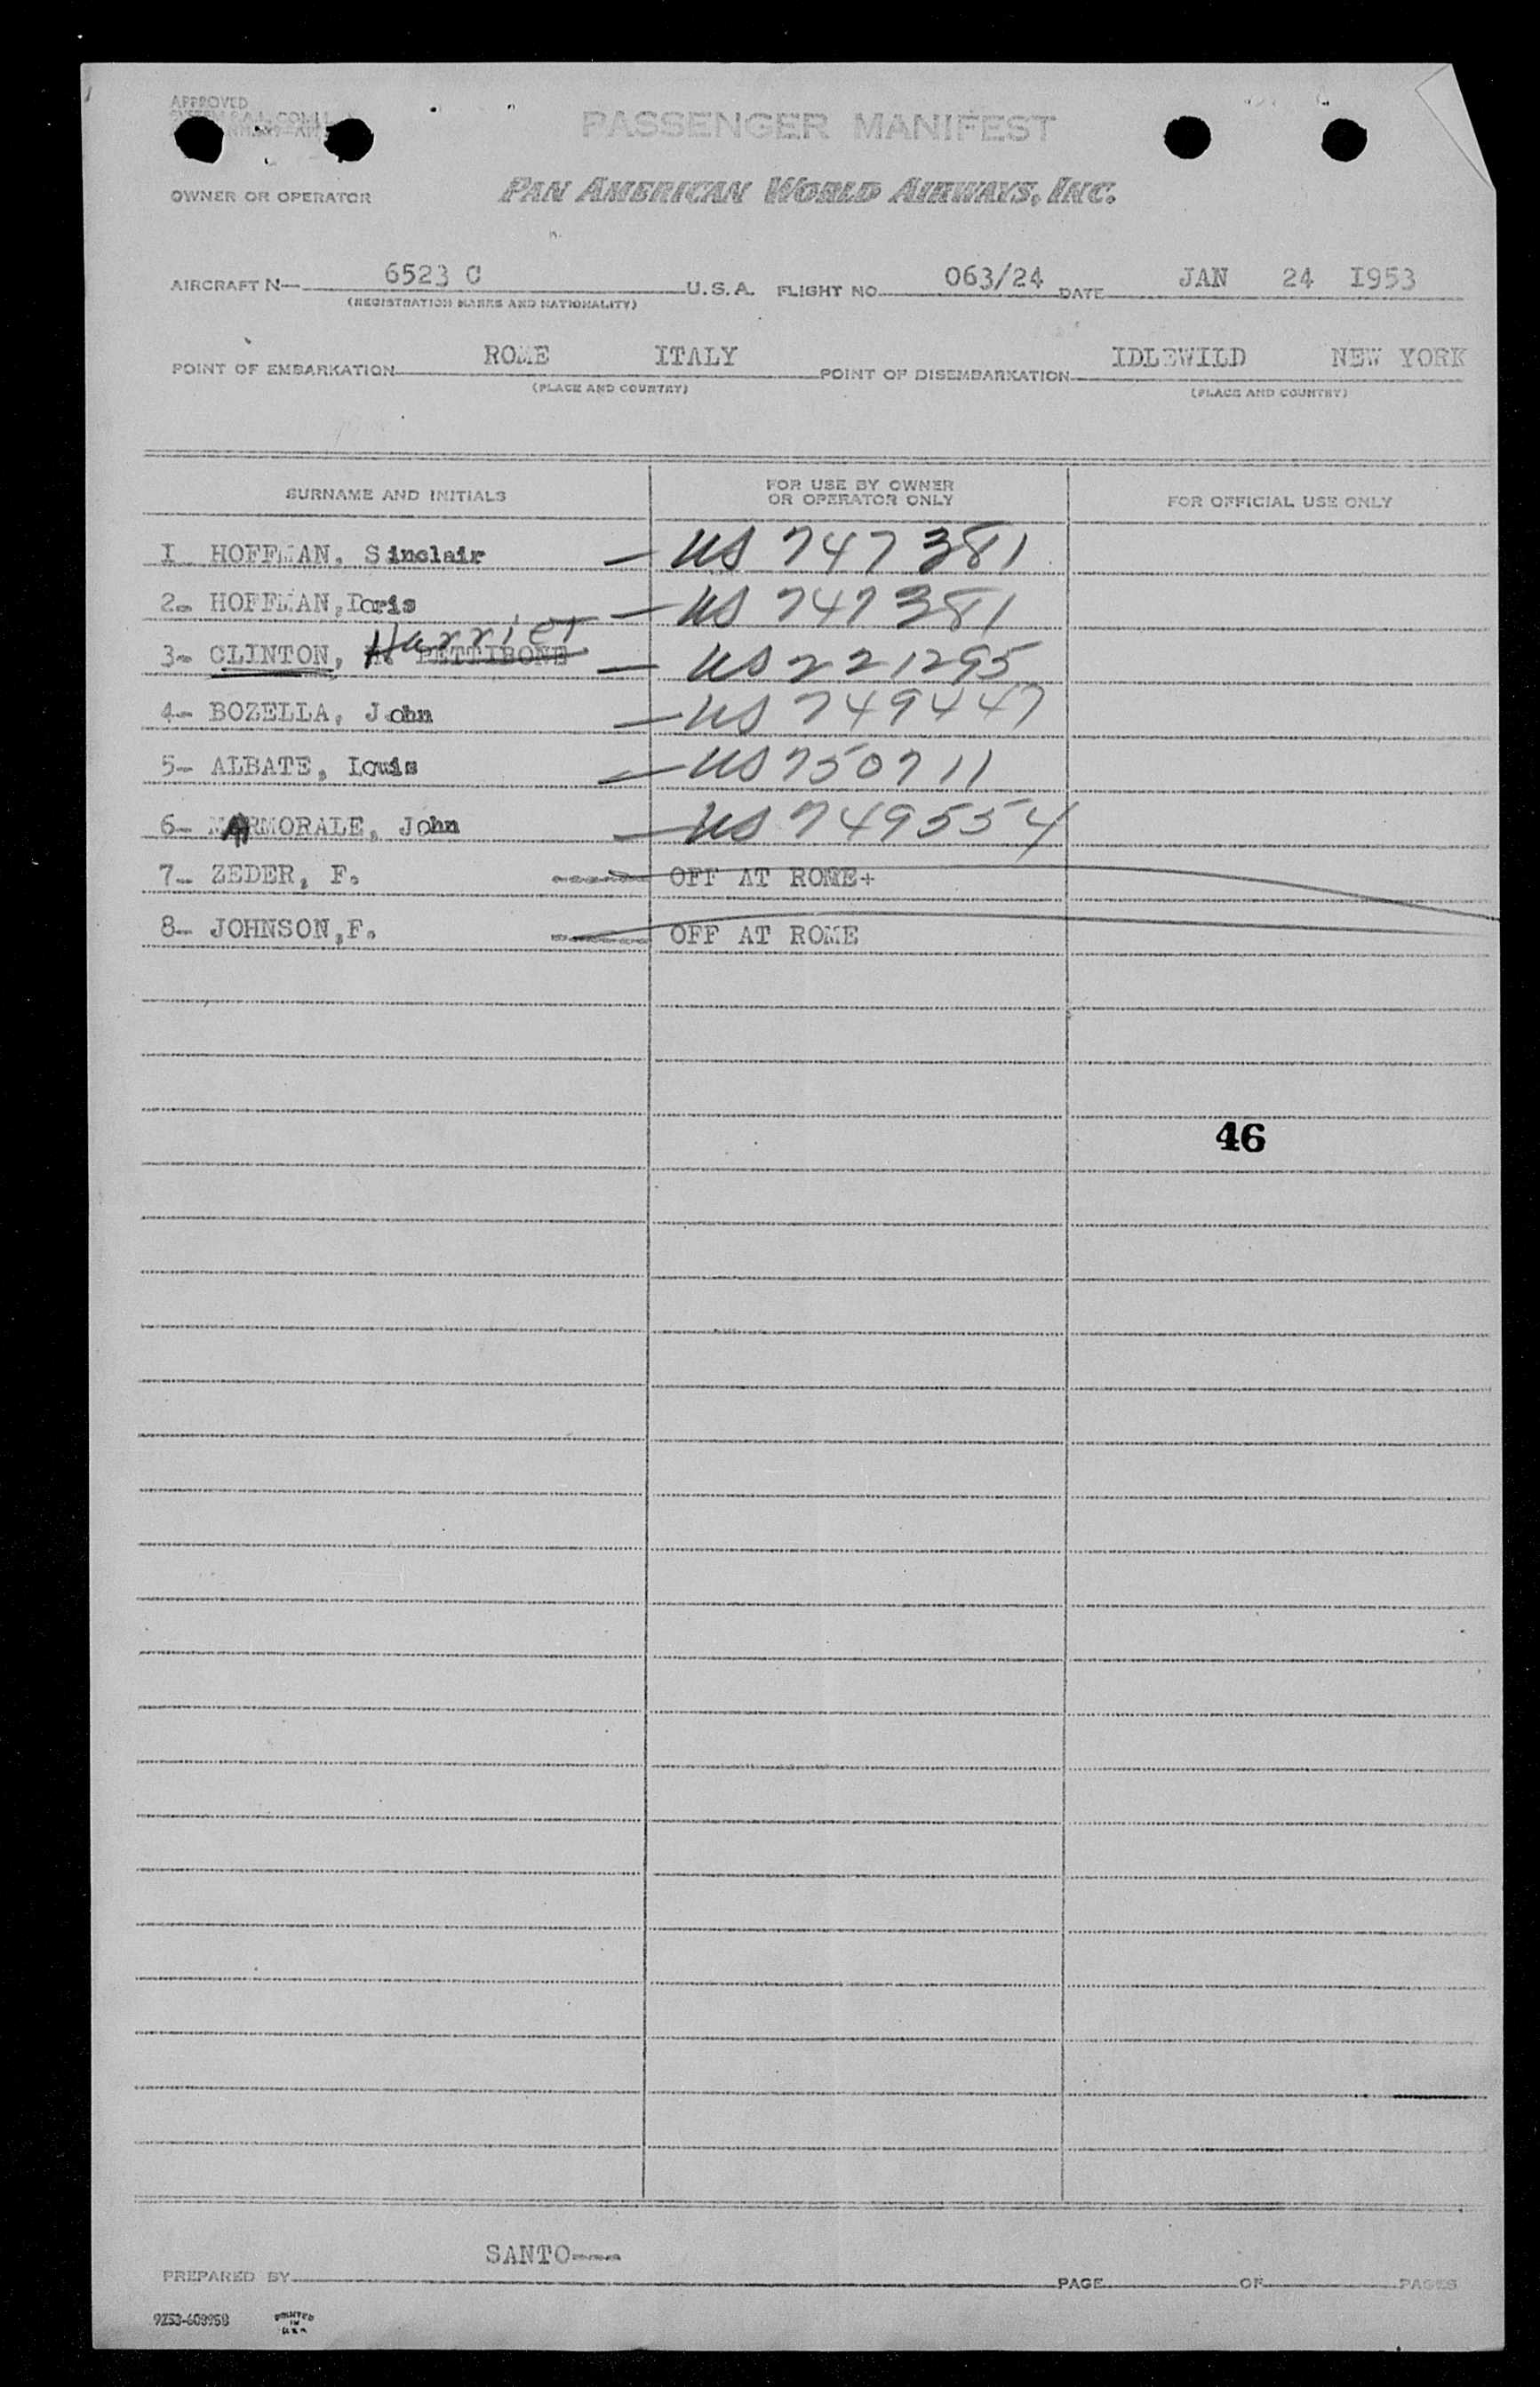 APPROVED
PASSENGER MANIFEST
OWNER OR OPERATOR PAN AMERICAN WORLD AIRWAYS, INC.
AIRCRAFT N— 6523 C U.S.A. FLIGHT NO 063/24 DATE JAN 24 I953
(REGISTRATION MARKS AND NATIONALITY)
POINT OF EMBARKATION ROME ITALY POINT OF DISEMBARKATION IDLEWILD NEW YORK
(PLACE AND COUNTRY) (PLACE AND COUNTRY)
SURNAME AND INITIALS FOR USE BY OWNER OR OPERATOR ONLY FOR OFFICIAL USE ONLY
I HOFFMAN, Sinclair — US 747381
2- HOFFMAN, Doris — US 747381
3- CLINTON, Harriet PETTIBONE — US 221295
4- BOZELLA, John — US 749447
5- ALBATE, Louis — US 750711
6- MARMORALE, John — US 749554
7- ZEDER, F. OFF AT ROME+
8- JOHNSON,F. OFF AT ROME
46
PREPARED BY SANTO---- PAGE OF PAGES
9253-608958 PRINTED IN U.S.A.